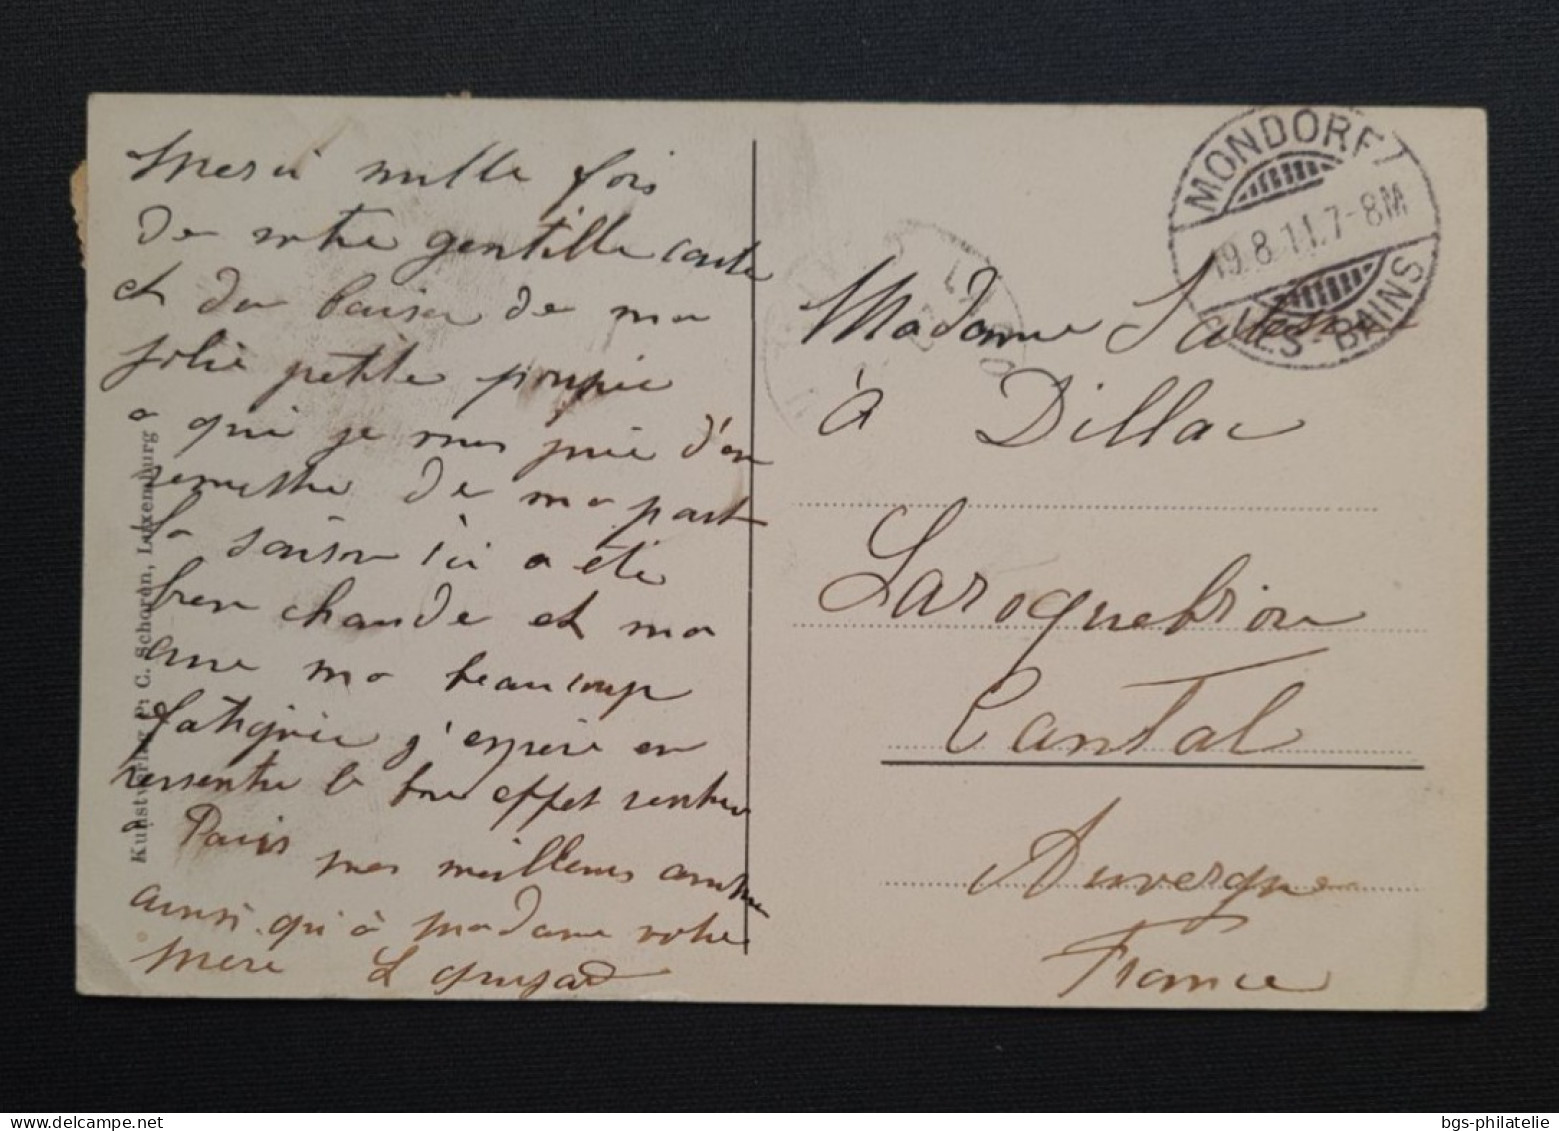 Merci mille fois
de votre gentille carte
et du baiser de ma
jolie petite poupée
a qui je vous prie d'en
remettre de ma part
la saison ici a été
bien chaude et ma
cure ma beaucoup
fatiguée j'espère en
ressentir le bon effet rentrer
a Paris mes meilleurs
ainsi qu'à madame votre
mère L
Kunstverlag P. C. Schoren, Luxemburg
MONDORF
19.8.11.7-8M
LES-BAINS
Madame
à Dillac
Laroquebrou
Cantal
Auvergne
France
bgs-philatelie